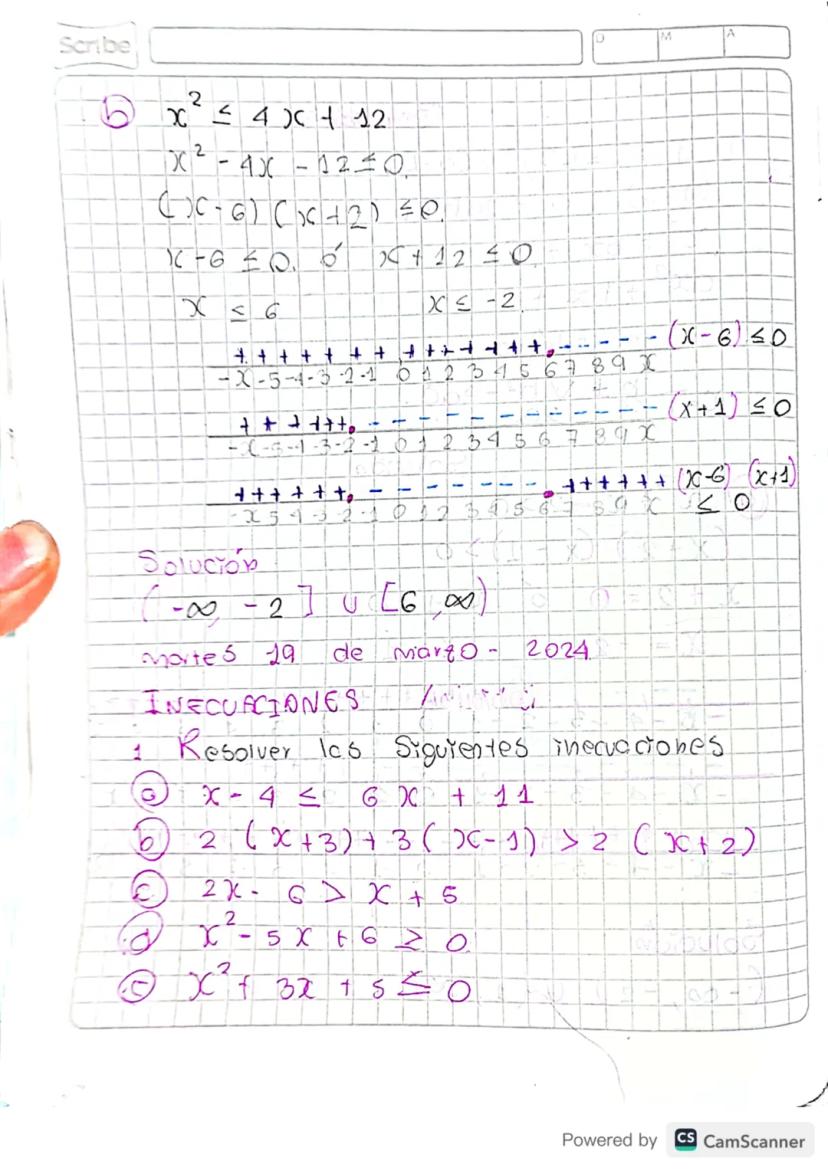 Scribe
D M A
b x² ≤ 4x + 12
x² - 4x - 12 ≤ 0.
(x - 6) (x + 2) ≤ 0.
x - 6 ≤ 0. ó x + 12 ≤ 0
x ≤ 6 x ≤ -2.
+ + + + + + + + + + + + + + . - - - - - (x - 6) ≤ 0
-x -5 -4 -3 -2 -1 0 1 2 3 4 5 6 7 8 9 x
+ + + + + + . - - - - - - - - - - - - - (x + 1) ≤ 0
-x -5 -4 -3 -2 -1 0 1 2 3 4 5 6 7 8 9 x
+ + + + + + . - - - - - - - - . + + + + + + (x-6) (x+1)
-x 5 -4 -3 -2 -1 0 1 2 3 4 5 6 7 8 9 x ≤ 0
Solución
(-∞, -2] ∪ [6, ∞)
martes 19 de marzo - 2024
INECUACIONES
1 Resolver las siguientes inecuaciones
a x - 4 ≤ 6x + 11
b 2 (x + 3) + 3 (x - 1) > 2 (x + 2)
c 2x - 6 > x + 5
d x² - 5x + 6 ≥ 0
e x² + 3x + 5 ≤ 0
Powered by CS CamScanner